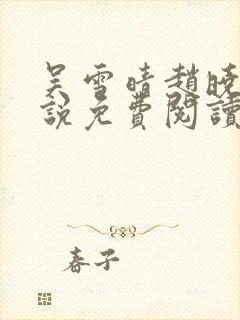 吴雪晴趙曉
説免費閱讀
春子